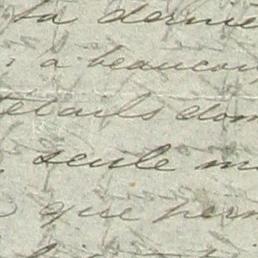 ta derniè
, a beaucou
détails don
seule m
que perm